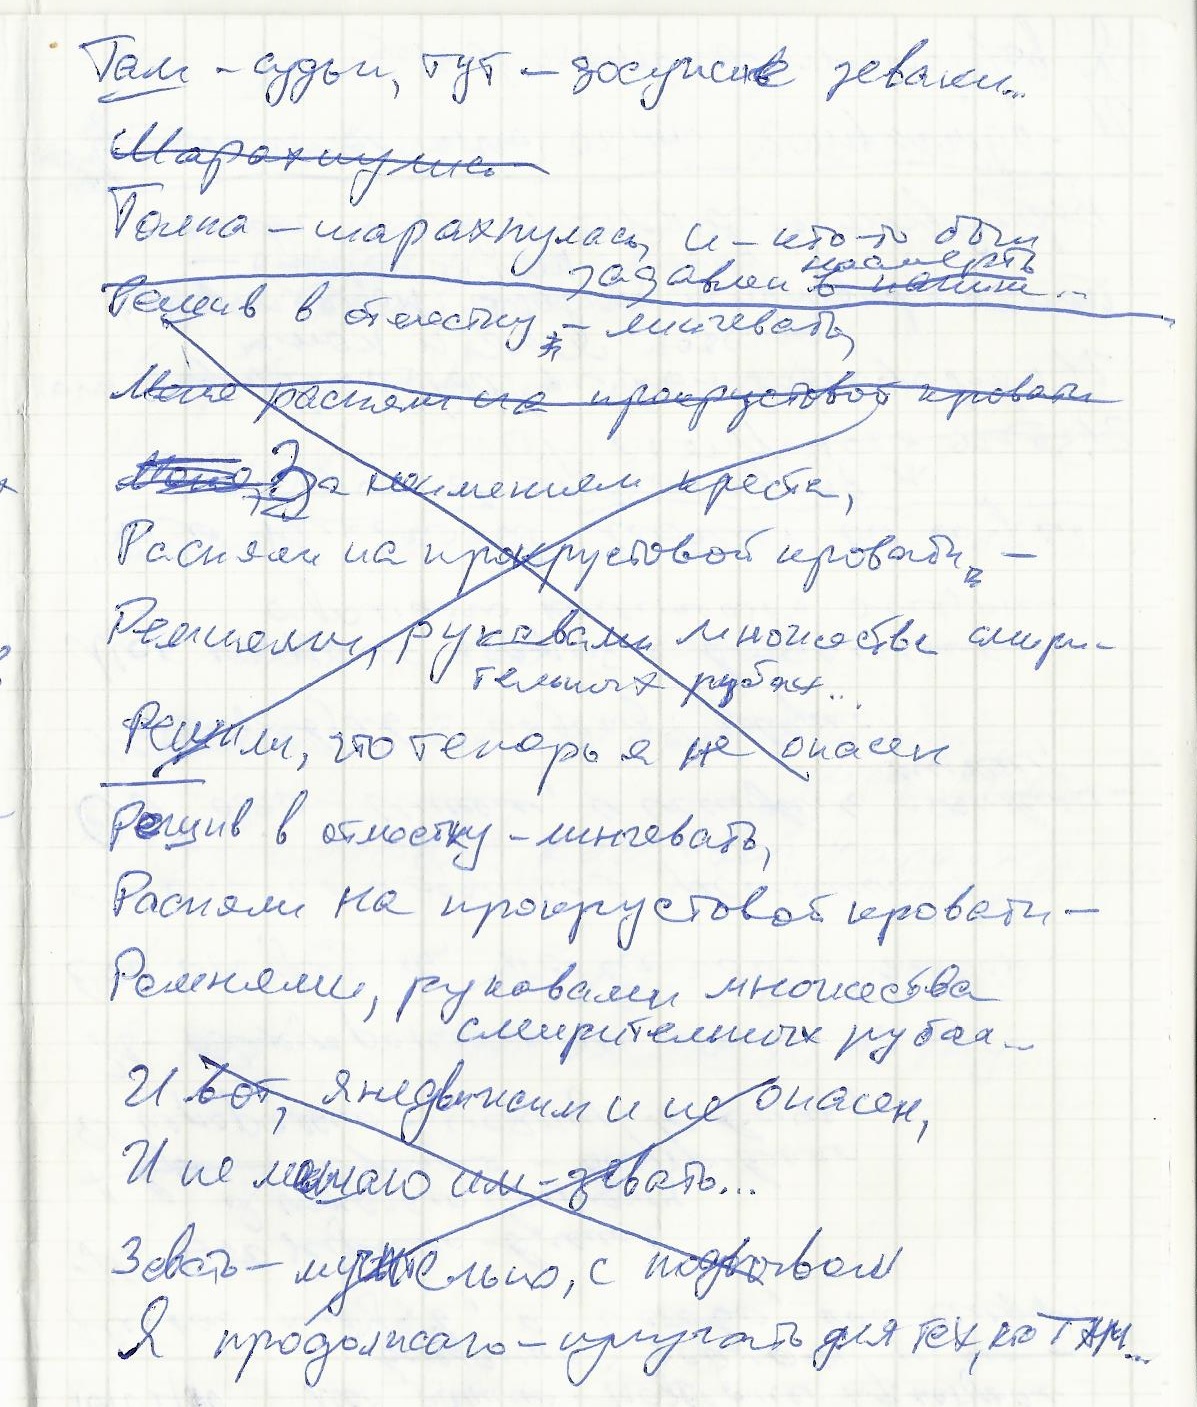 Там – судьи, тут – досужие зеваки...
Шарахнулись
Толпа – шарахнулась, и – кто-то был
насмерть
задавлен в
Решив в отместку, – линчевать,
Меня распяли на прокрустовой кровати
Меня, За неимением креста,
Распяли на прокрустовой кровати, –
Ремнями, рукавами множества смири-
тельных рубах...
Решили, что теперь я не опасен
Решив в отместку – линчевать,
Распяли на прокрустовой кровати –
Ремнями, рукавами множества
смирительных рубах...
И вот, я недвижим и не опасен,
И не мешаю им – зевать...
Зевать – мучительно, с подвывом
Я продолжаю – измучать для тех, кто ТАМ...